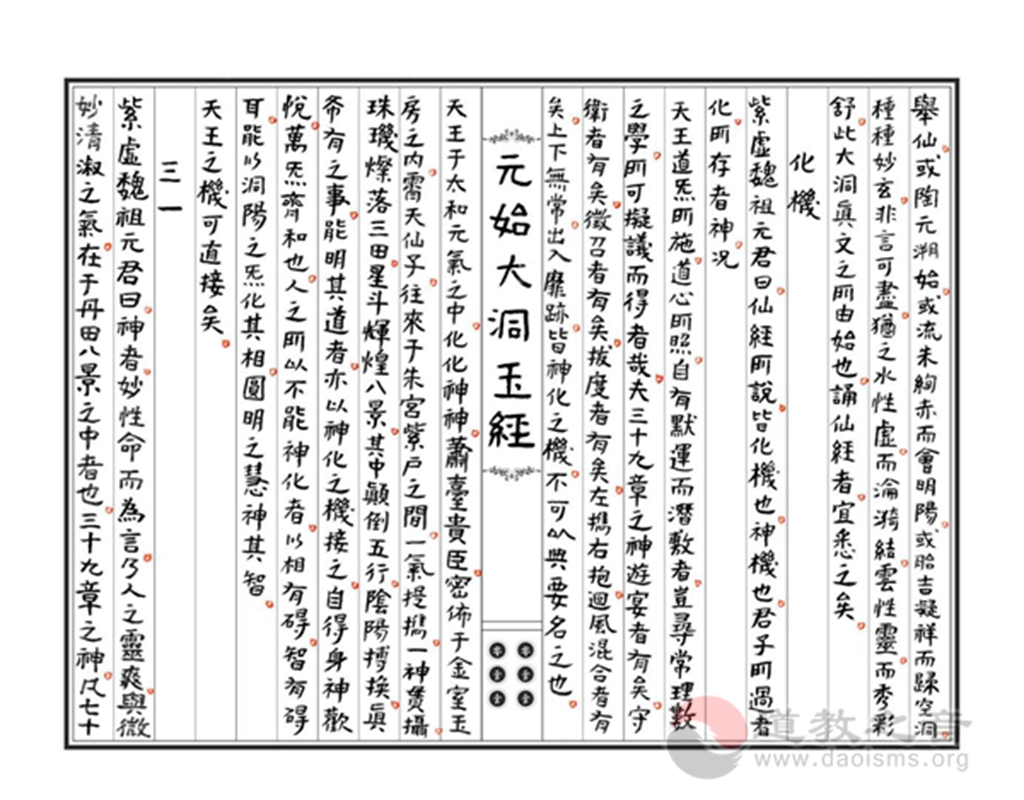 舉仙或陶元溯始或流朱絢赤而會明陽或胎吉凝祥而蹂空洞
種種妙玄非言可盡猶之水性虛而淪漪結雲性靈而秀彩
舒此大洞眞文之所由始也誦仙經者宜悉之矣
化機
紫虛魏祖元君曰仙經所說皆化機也神機也君子所過者
化所存者神况
天王道炁所施道心所照自有默運而潛敷者豈尋常理數
之學所可擬議而得者哉夫三十九章之神遊宴者有矣守
衛者有矣徵召者有矣拔度者有矣左攜右抱迴風混合者有
矣上下無常出入靡跡皆神化之機不可以典要名之也
元始大洞玉經
天王于太和元氣之中化化神神蕭臺貴臣密佈于金室玉
房之內霄天仙子往來于朱宮紫戶之間一氣提攜一神攝
珠璣燦落三田星斗輝煌八景其中顛倒五行陰陽摶換眞
希有之事能明其道者亦以神化之機接之自得身神歡
悅萬炁齊和也人之所以不能神化者以相有碍智有碍
耳能以洞陽之炁化其相圓明之慧神其智
天王之機可直接矣
三一
紫虛魏祖元君曰神者妙性命而為言乃人之靈爽與微
妙清淑之氣在于丹田八景之中者也三十九章之神凡七十
道教之音
www.daoisms.org